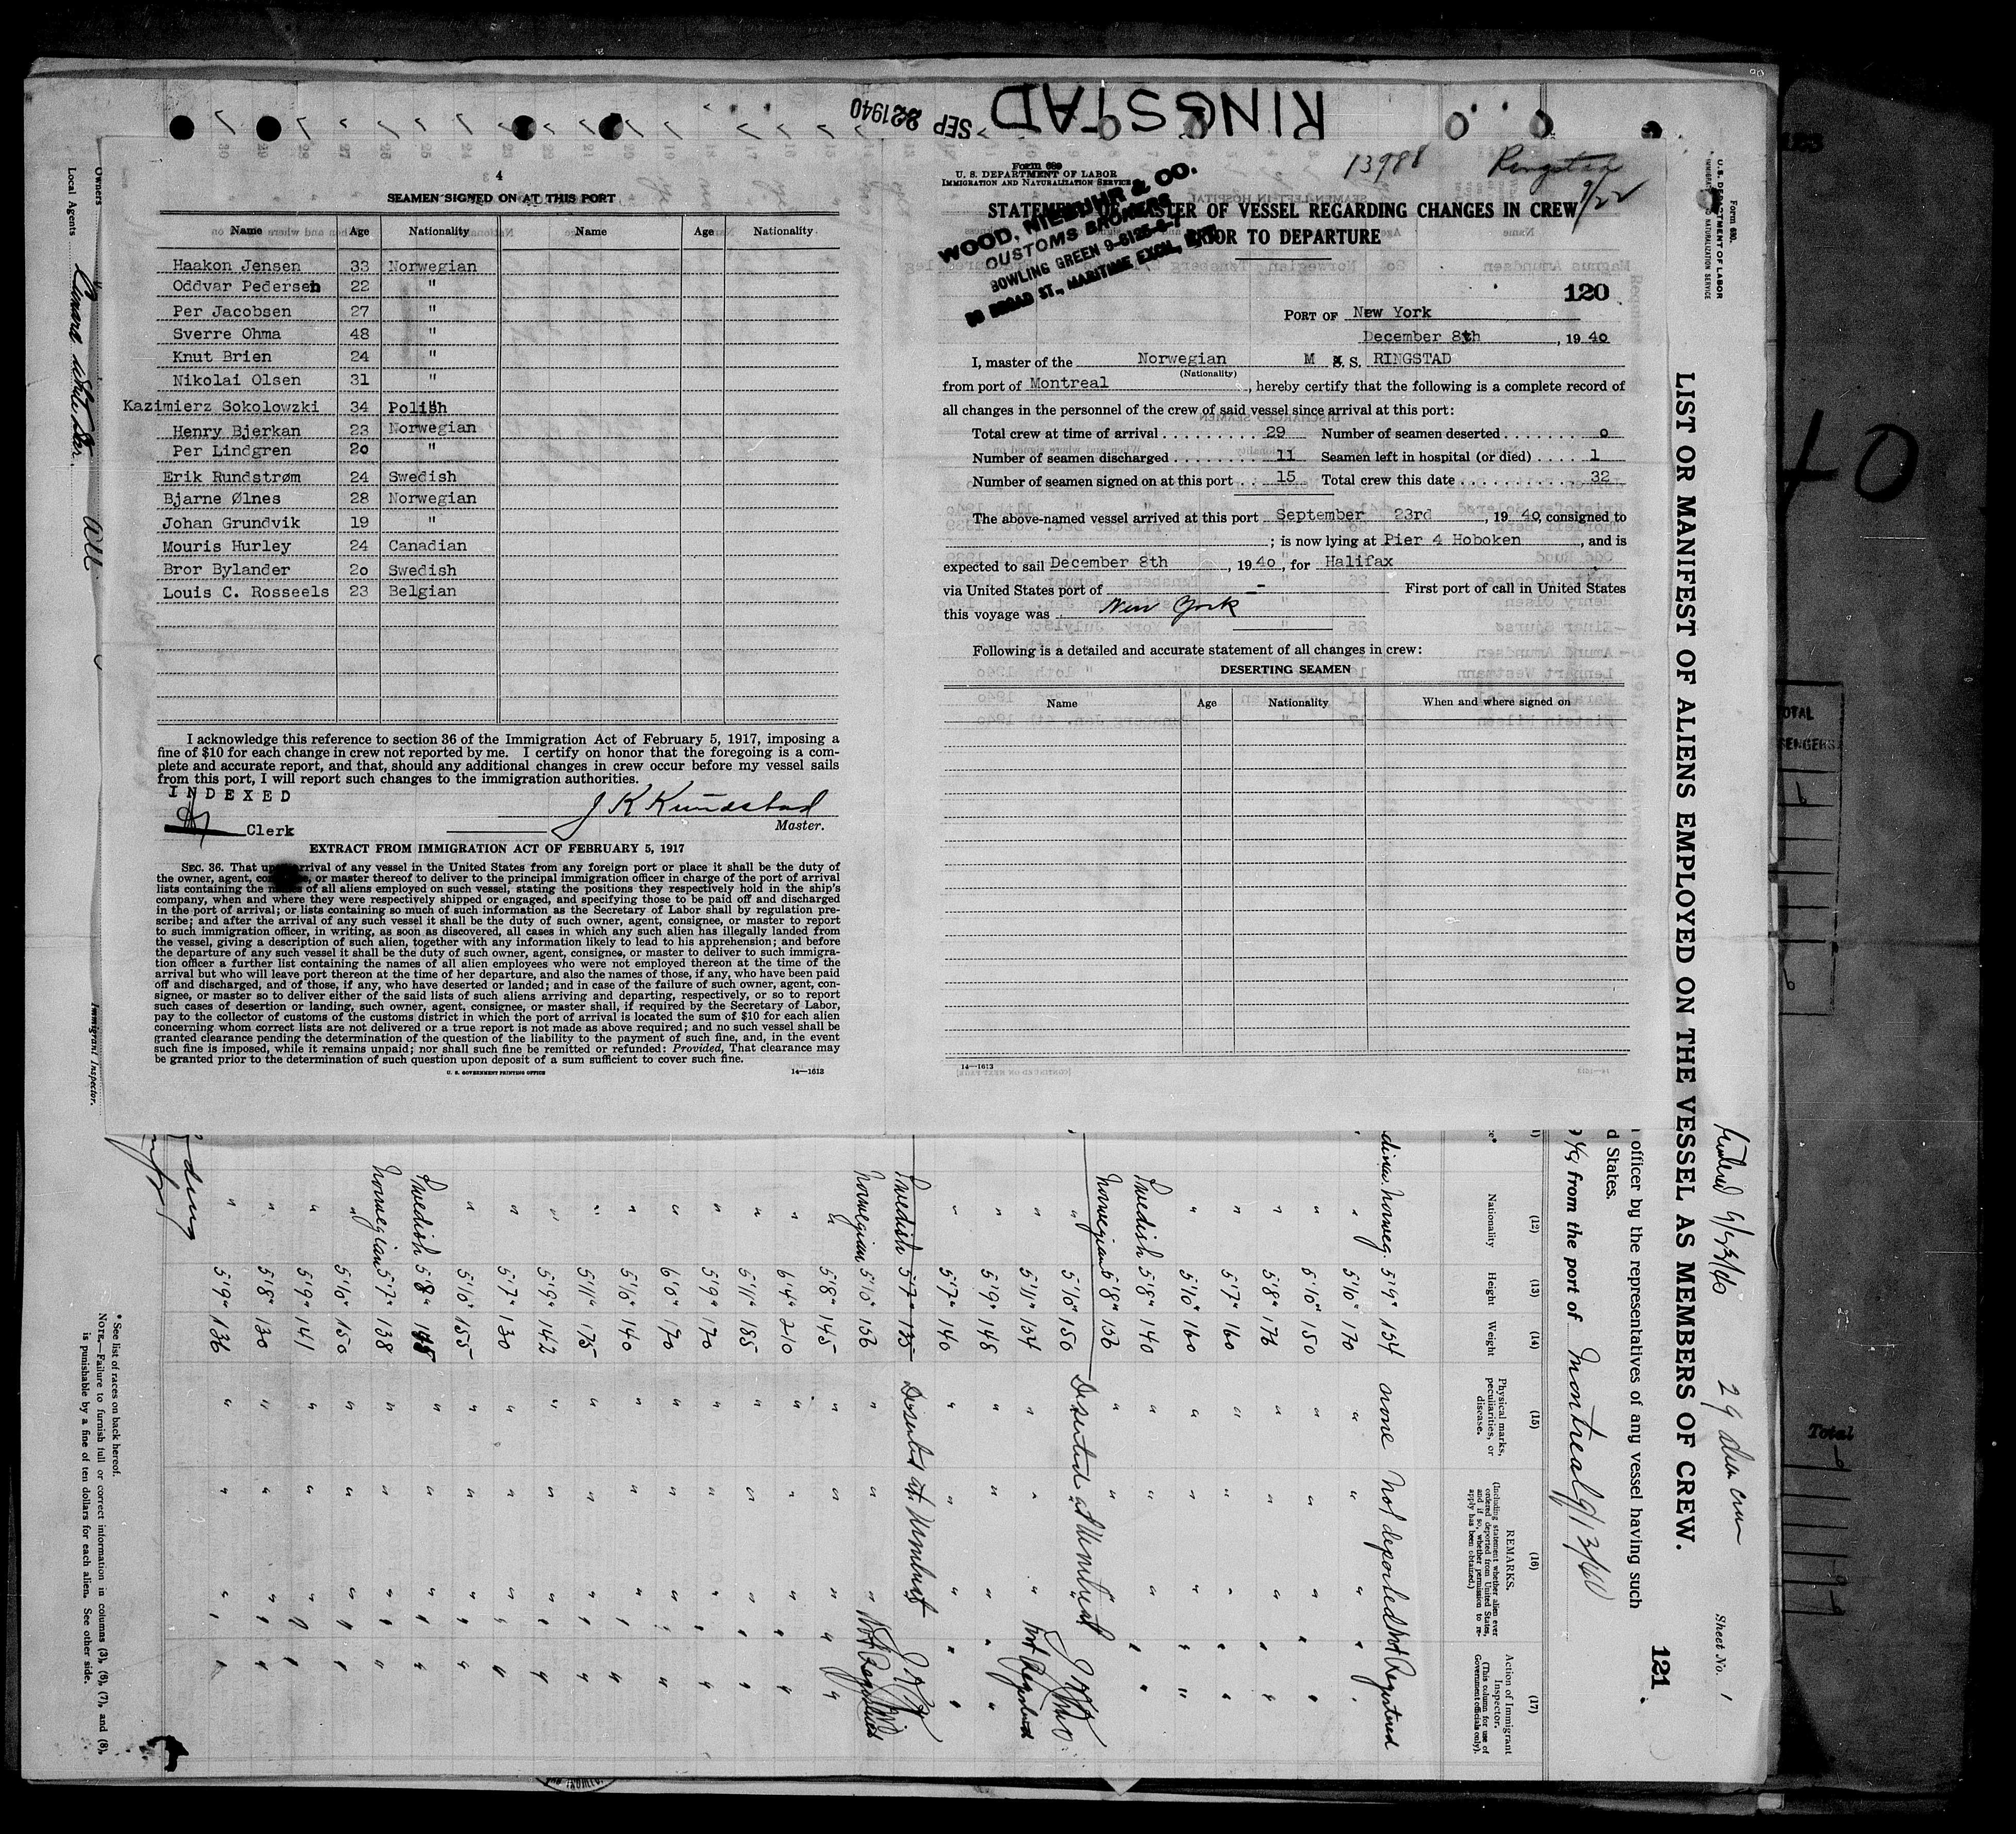 RINGSTAD
SEP 221940
4
SEAMEN SIGNED ON AT THIS PORT
Name Age Nationality Name Age Nationality
Haakon Jensen 33 Norwegian
Oddvar Pedersen 22 "
Per Jacobsen 27 "
Sverre Ohma 48 "
Knut Brien 24 "
Nikolai Olsen 31 "
Kazimierz Sokolowzki 34 Polish
Henry Bjerkan 23 Norwegian
Per Lindgren 20 "
Erik Rundstrøm 24 Swedish
Bjarne Ølnes 28 Norwegian
Johan Grundvik 19 "
Mouris Hurley 24 Canadian
Bror Bylander 20 Swedish
Louis C. Rosseels 23 Belgian
I acknowledge this reference to section 36 of the Immigration Act of February 5, 1917, imposing a
fine of $10 for each change in crew not reported by me. I certify on honor that the foregoing is a com-
plete and accurate report, and that, should any additional changes in crew occur before my vessel sails
from this port, I will report such changes to the immigration authorities.
INDEXED
Clerk
J K Knudstad
Master.
EXTRACT FROM IMMIGRATION ACT OF FEBRUARY 5, 1917
SEC. 36. That upon arrival of any vessel in the United States from any foreign port or place it shall be the duty of
the owner, agent, consignee, or master thereof to deliver to the principal immigration officer in charge of the port of arrival
lists containing the names of all aliens employed on such vessel, stating the positions they respectively hold in the ship's
company, when and where they were respectively shipped or engaged, and specifying those to be paid off and discharged
in the port of arrival; or lists containing so much of such information as the Secretary of Labor shall by regulation pre-
scribe; and after the arrival of any such vessel it shall be the duty of such owner, agent, consignee, or master to report
to such immigration officer, in writing, as soon as discovered, all cases in which any such alien has illegally landed from
the vessel, giving a description of such alien, together with any information likely to lead to his apprehension; and before
the departure of any such vessel it shall be the duty of such owner, agent, consignee, or master to deliver to such immigra-
tion officer a further list containing the names of all alien employees who were not employed thereon at the time of the
arrival but who will leave port thereon at the time of her departure, and also the names of those, if any, who have been paid
off and discharged, and of those, if any, who have deserted or landed; and in case of the failure of such owner, agent, con-
signee, or master so to deliver either of the said lists of such aliens arriving and departing, respectively, or so to report
such cases of desertion or landing, such owner, agent, consignee, or master shall, if required by the Secretary of Labor,
pay to the collector of customs of the customs district in which the port of arrival is located the sum of $10 for each alien
concerning whom correct lists are not delivered or a true report is not made as above required; and no such vessel shall be
granted clearance pending the determination of the question of the liability to the payment of such fine, and, in the event
such fine is imposed, while it remains unpaid; nor shall such fine be remitted or refunded: Provided, That clearance may
be granted prior to the determination of such question upon deposit of a sum sufficient to cover such fine.
U. S. GOVERNMENT PRINTING OFFICE 14—1613
Form 689
U. S. DEPARTMENT OF LABOR
IMMIGRATION AND NATURALIZATION SERVICE
13988 Ringstad
9/22
STATEMENT OF MASTER OF VESSEL REGARDING CHANGES IN CREW
PRIOR TO DEPARTURE
WOOD, NIEBUHR & CO.
CUSTOMS BROKERS
BOWLING GREEN 9-6125-6-7
BROAD ST., MARITIME EXCH.,
120
PORT OF New York
December 8th, 1940
I, master of the Norwegian M S. RINGSTAD
(Nationality)
from port of Montreal, hereby certify that the following is a complete record of
all changes in the personnel of the crew of said vessel since arrival at this port:
Total crew at time of arrival 29 Number of seamen deserted 0
Number of seamen discharged 11 Seamen left in hospital (or died) 1
Number of seamen signed on at this port 15 Total crew this date 32
The above-named vessel arrived at this port September 23rd, 1940, consigned to
; is now lying at Pier 4 Hoboken, and is
expected to sail December 8th, 1940, for Halifax
via United States port of - First port of call in United States
this voyage was New York
Following is a detailed and accurate statement of all changes in crew:
DESERTING SEAMEN
Name Age Nationality When and where signed on
14—1613
Form 680.
U. S. DEPARTMENT OF LABOR
IMMIGRATION AND NATURALIZATION SERVICE
LIST OR MANIFEST OF ALIENS EMPLOYED ON THE VESSEL AS MEMBERS OF CREW.
Sheet No. 1
121
officer by the representatives of any vessel having such
d States.
from the port of Montreal 9/13/40
(12) Nationality
(13) Height
(14) Weight
(15) Physical marks, peculiarities, or disease.
(16) REMARKS. (Including statement whether alien ever ordered deported from United States, and if so, whether permission to re-apply has been obtained.)
(17) Action of Immigrant Inspector. (This column for use of Government officials only).
Norweg. 5'9" 154 none Not deported Not Registered
" 5'10" 170 " "
" 5'10" 150 " "
" 5'8" 176 " "
" 5'7" 160 " "
" 5'10" 160 " "
Swedish 5'8" 140 " "
Norwegian 5'8" 156 " "
" 5'10" 150 Deserted at
" 5'11" 154 " "
" 5'9" 148 " "
" 5'7" 140 " "
Swedish 5'7" 135 Deserted at
Norwegian 5'10" 156 " " Not Registered
" 5'8" 145 " "
" 6'4" 210 " "
" 5'11" 185 " "
" 5'9" 170 " "
" 6'0" 170 " "
" 5'10" 140 " "
" 5'11" 175 " "
" 5'9" 142 " "
" 5'7" 130 " "
" 5'10" 155 " "
Swedish 5'8" 145 " "
Norwegian 5'7" 138 " "
" 5'10" 150 " "
" 5'9" 141 " "
" 5'8" 130 " "
" 5'9" 136 " "
* See list of races on back hereof.
NOTE.—Failure to furnish full or correct information in columns (3), (6), (7), and (8),
is punishable by a fine of ten dollars for each alien. See other side.
Owners
Local Agents Cunard White Star.
Immigrant Inspector.
Total